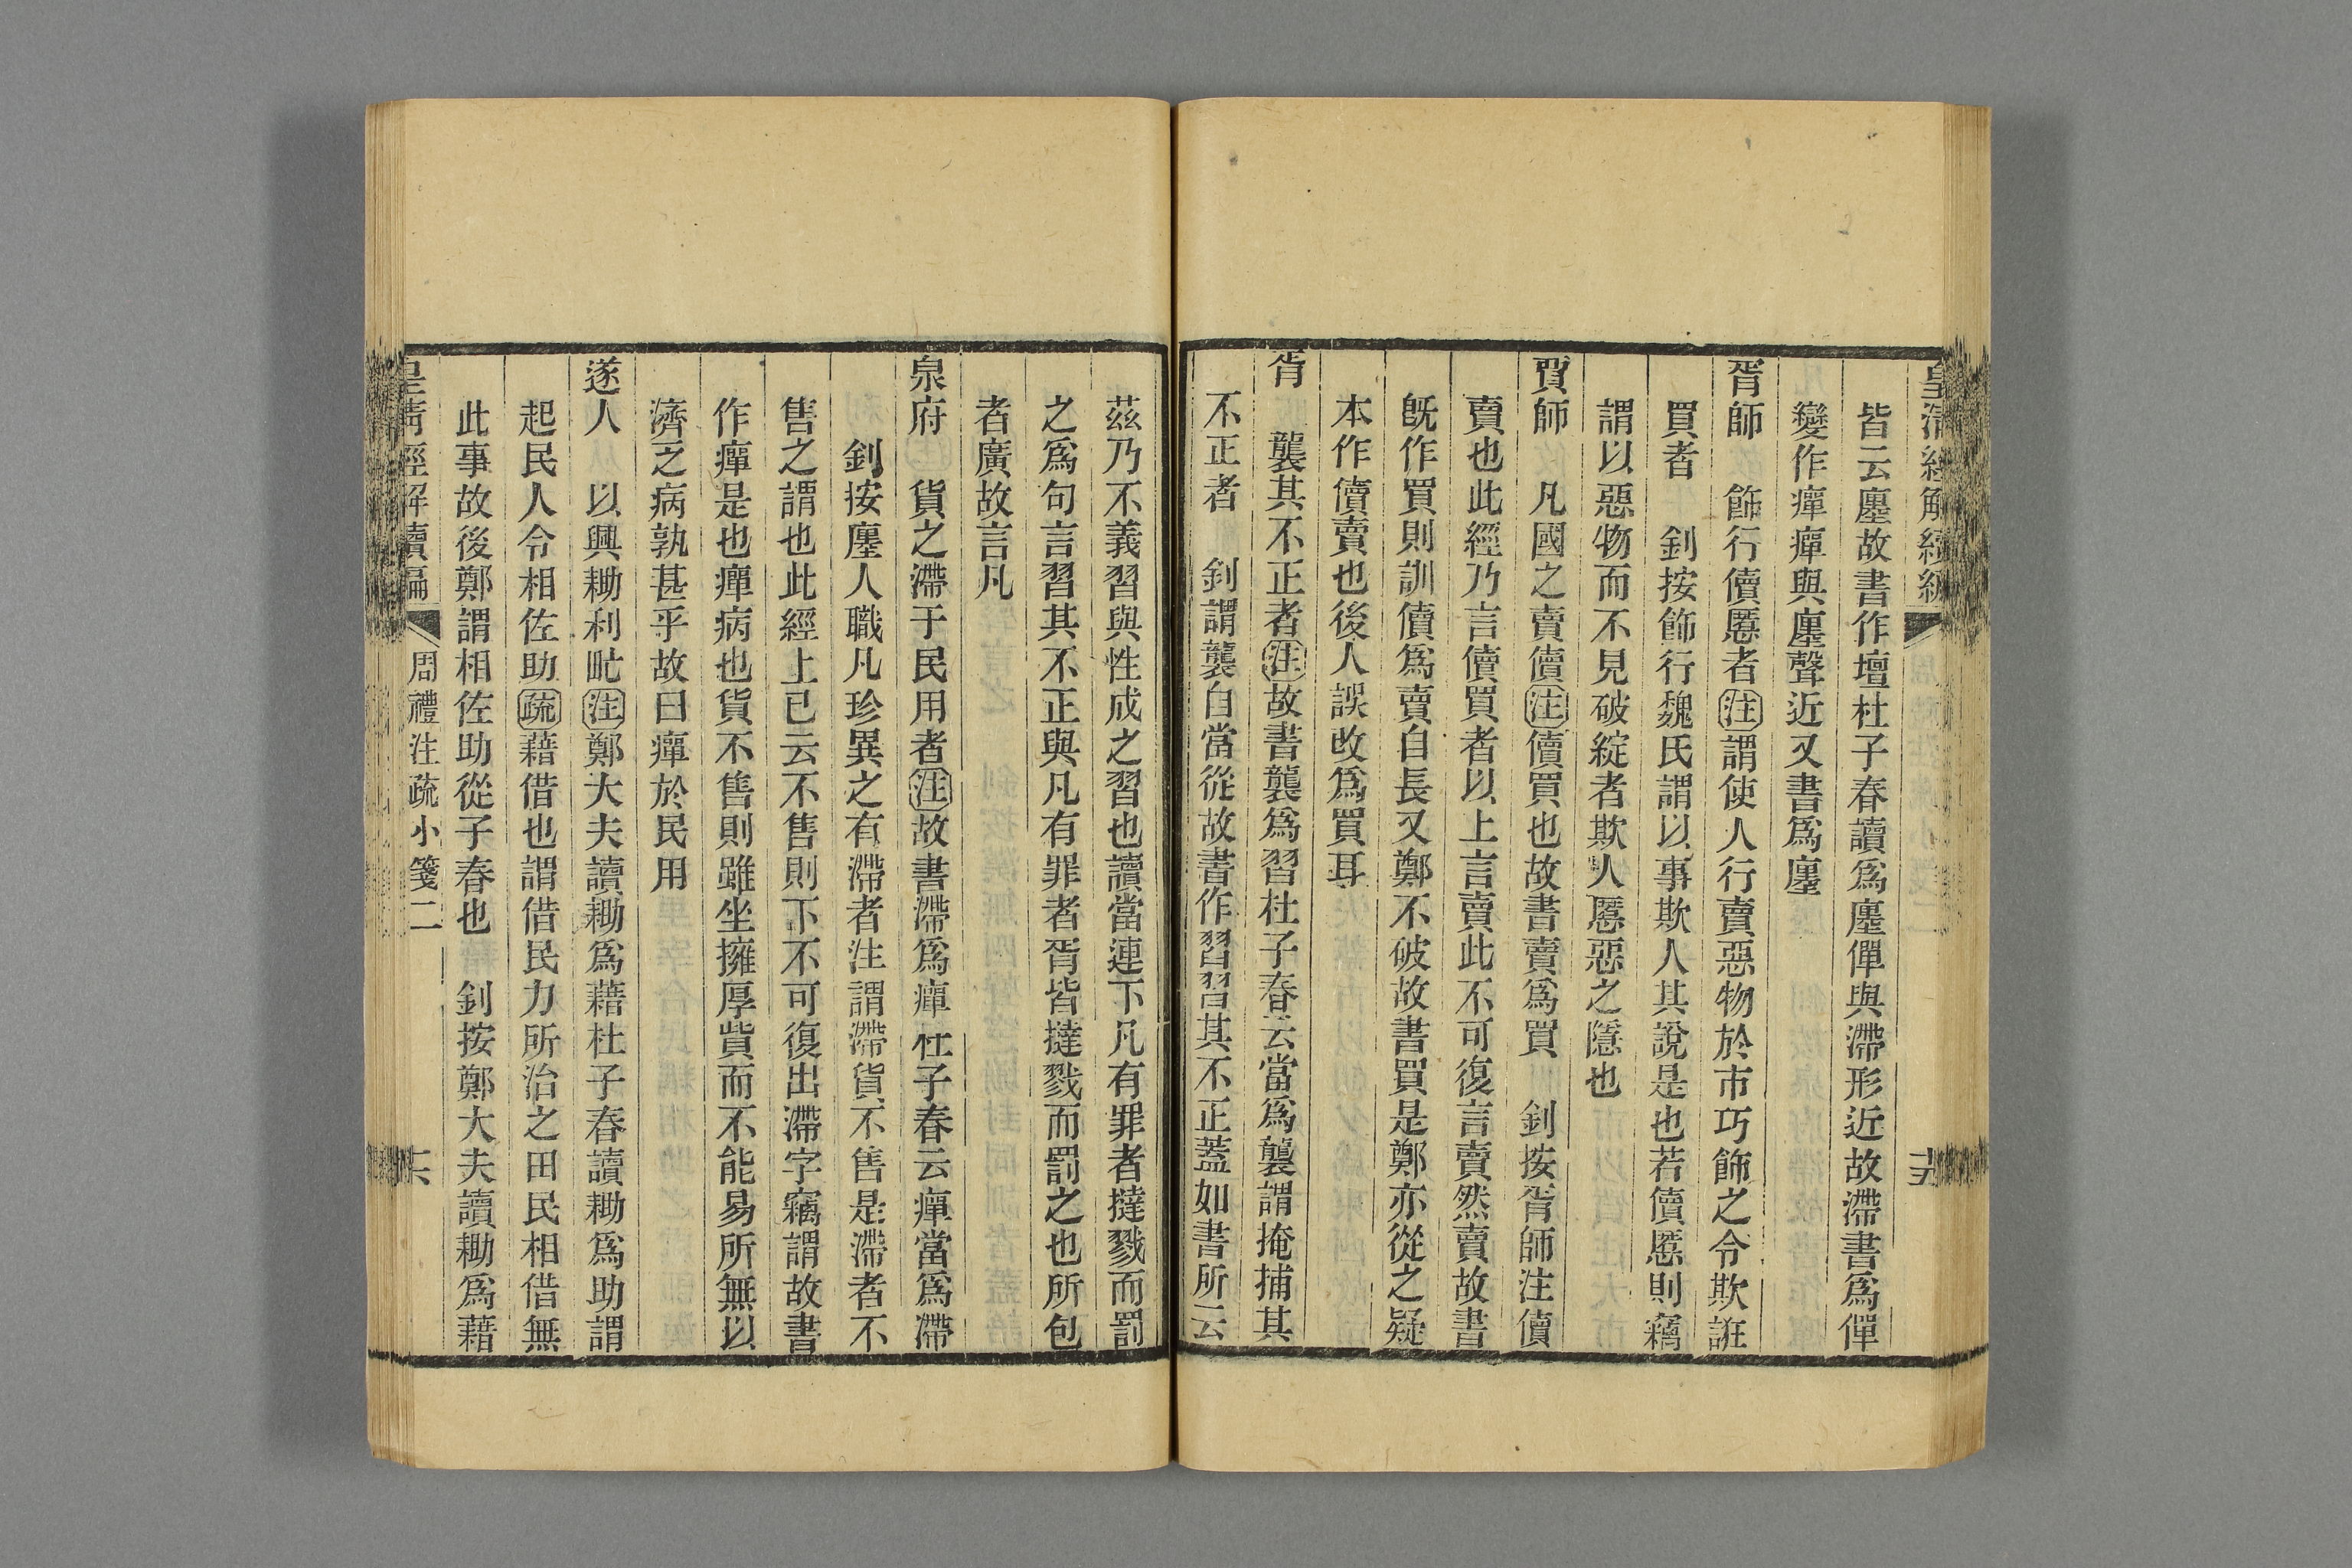 皇清經解續編
十五
皆云廛故書作壇杜子春讀爲廛僤與滯形近故滯書爲僤
變作癉癉與廛聲近又書爲廛
胥師　飾行儥慝者注謂使人行賣惡物於市巧飾之令欺誑
買者　釗按飾行魏氏謂以事欺人其說是也若儥慝則竊
謂以惡物而不見破綻者欺人慝惡之隱也
賈師　凡國之賣儥注儥買也故書賣爲買　釗按胥師注儥
賣也此經乃言儥買者以上言賣此不可復言賣然賣故書
旣作買則訓儥爲賣自長又鄭不破故書買是鄭亦從之疑
本作儥賣也後人誤改爲買耳
胥　襲其不正者注故書襲爲習杜子春云當爲襲謂掩捕其
不正者　釗謂襲自當從故書作習習其不正蓋如書所云
茲乃不義習與性成之習也讀當連下凡有罪者撻戮而罰
之爲句言習其不正與凡有罪者胥皆撻戮而罰之也所包
者廣故言凡
泉府　貨之滯于民用者注故書滯爲癉杜子春云癉當爲滯
釗按廛人職凡珍異之有滯者注謂滯貨不售是滯者不
售之謂也此經上已云不售則下不可復出滯字竊謂故書
作癉是也癉病也貨不售則雖坐擁厚貲而不能易所無以
濟之病孰甚乎故曰癉於民用
遂人　以興耡利甿注鄭大夫讀耡爲藉杜子春讀耡爲助謂
起民人令相佐助疏藉借也謂借民力所治之田民相借無
此事故後鄭謂相佐助從子春也　釗按鄭大夫讀耡爲藉
皇清經解續編
周禮注疏小箋二
十六